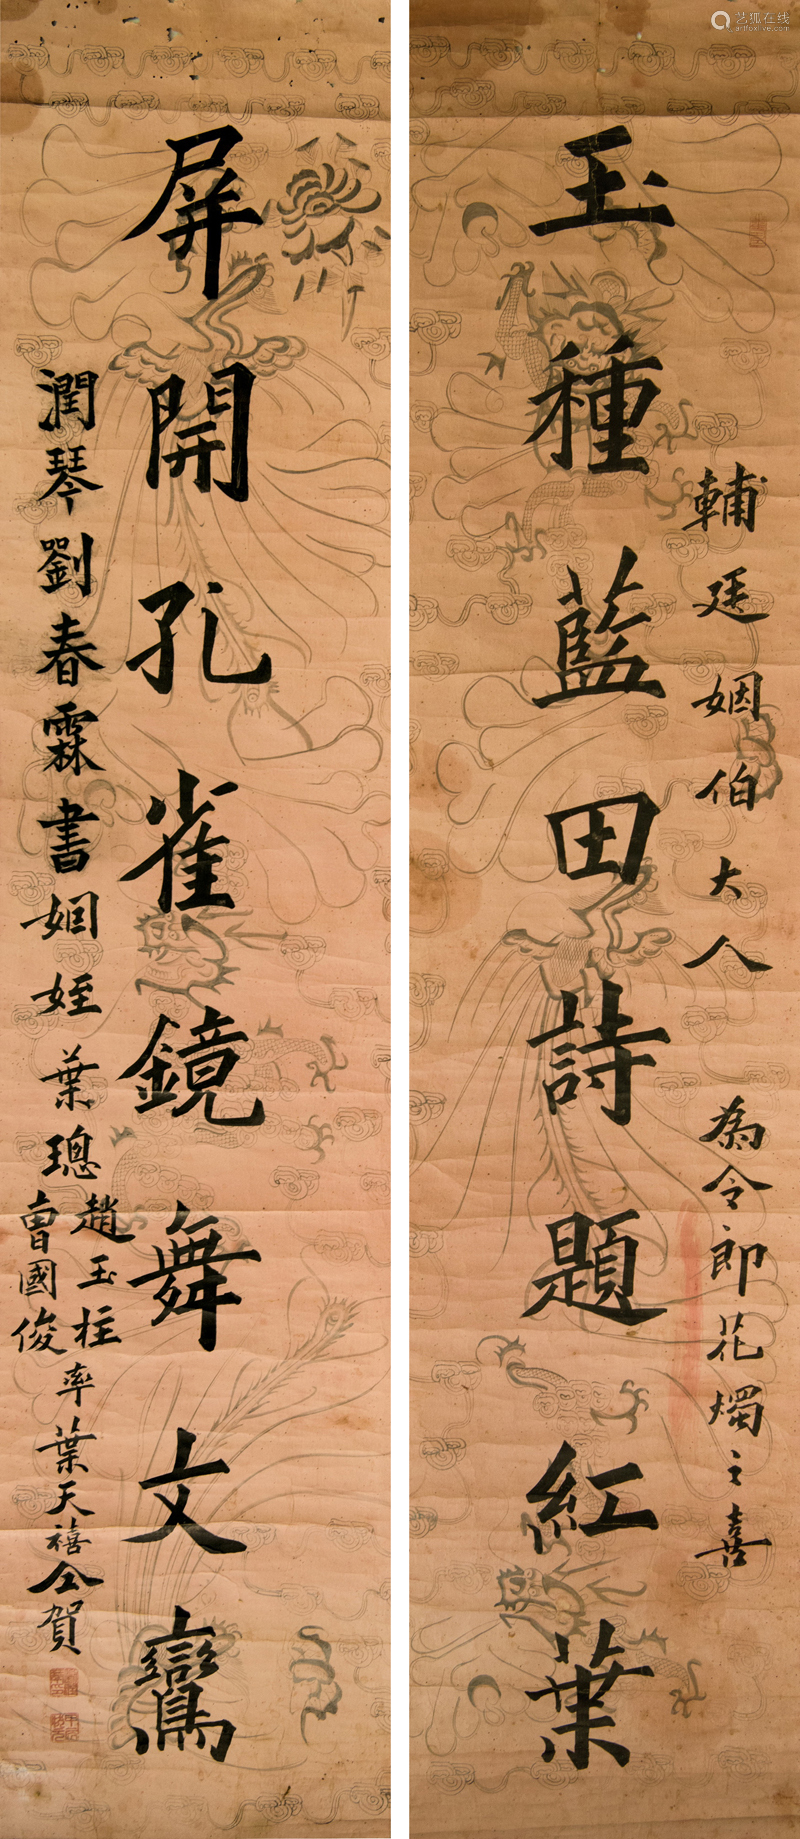 艺狐在线
artfoxlive.com
輔廷姻伯大人 為令郎花燭之喜
玉種藍田詩題紅葉
屏開孔雀鏡舞文鸞
潤琴劉春霖書姻姪葉璁趙玉柱曹國俊率葉天禧仝賀